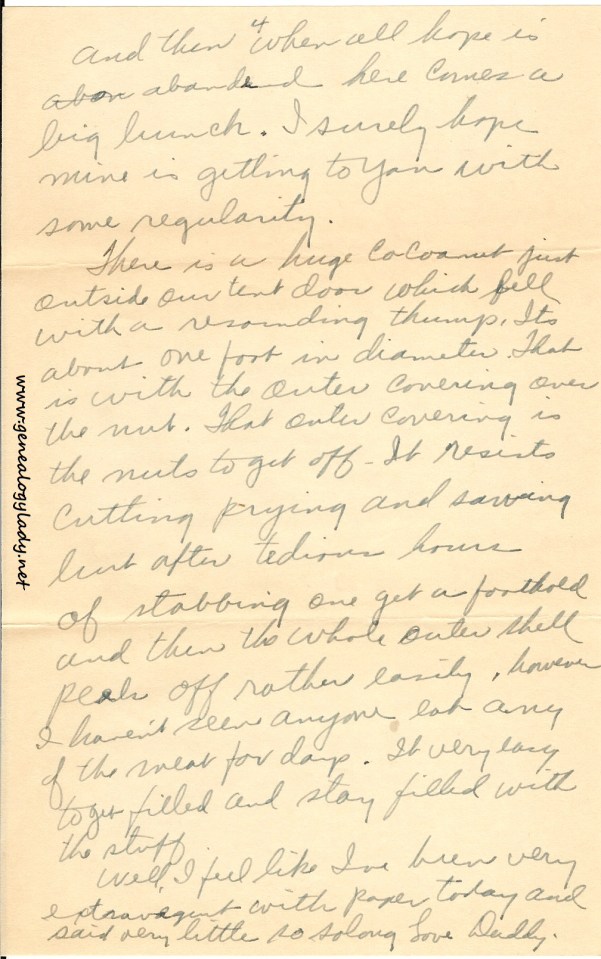 4
and then when all hope is
abon abandend here comes a
big bunch. I surely hope
mine is getting to you with
some regularity.
There is a huge cocoanut just
outside our tent door which fell
with a resounding thump. Its
about one foot in diameter. That
is with the outer covering over
the nut. That outer covering is
the nuts to get off - It resists
cutting prying and sawing
but after tedious hours
of stabbing one get a foothold
and then the whole outer shell
peals off rather easily, however
I haven't seen anyone eat any
of the meat for days. It very easy
to get filled and stay filled with
the stuff
Well, I feel like I've been very
extravagent with paper today and
said very little so solong Love Daddy.
www.genealogylady.net